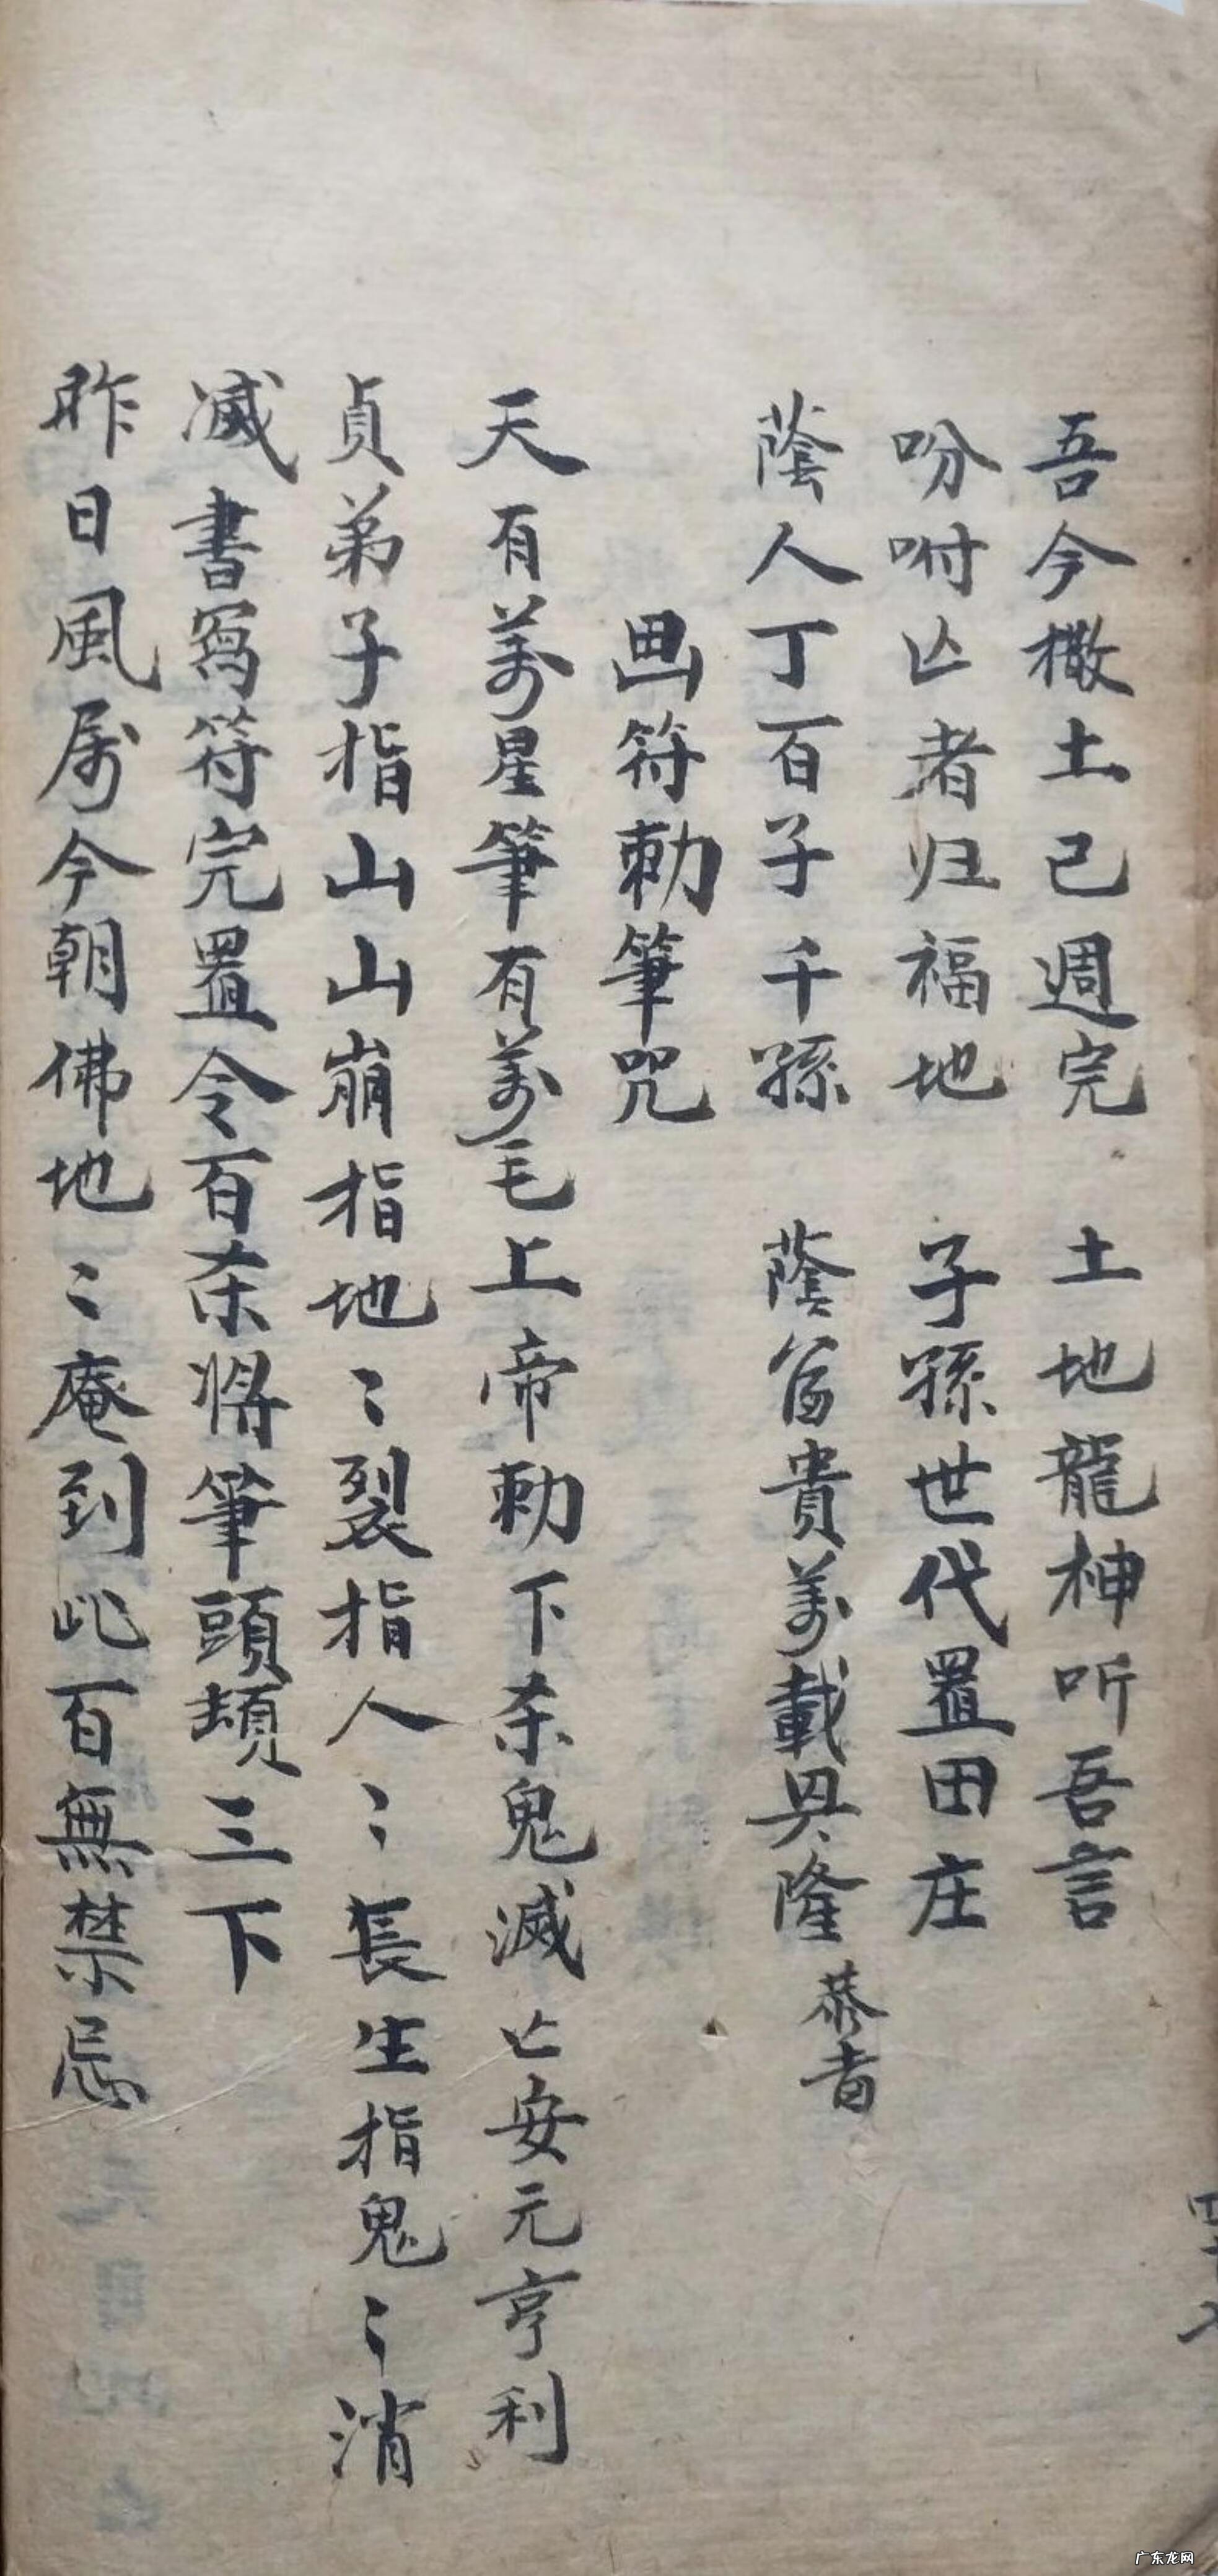 吾今撒土已週完　土地龍神听吾言
吩咐亾者归福地　子孫世代置田庄
蔭人丁百子千孫　蔭富貴萬載興隆
恭者
画符勅筆咒
天有萬星筆有萬毛上帝勅下杀鬼滅亾安元亨利
貞弟子指山山崩指地〻裂指人〻長生指鬼〻消
滅書寫符完置令百杀將筆頭頓三下
昨日風屬今朝佛地〻庵到此百無禁忌
广东龙网